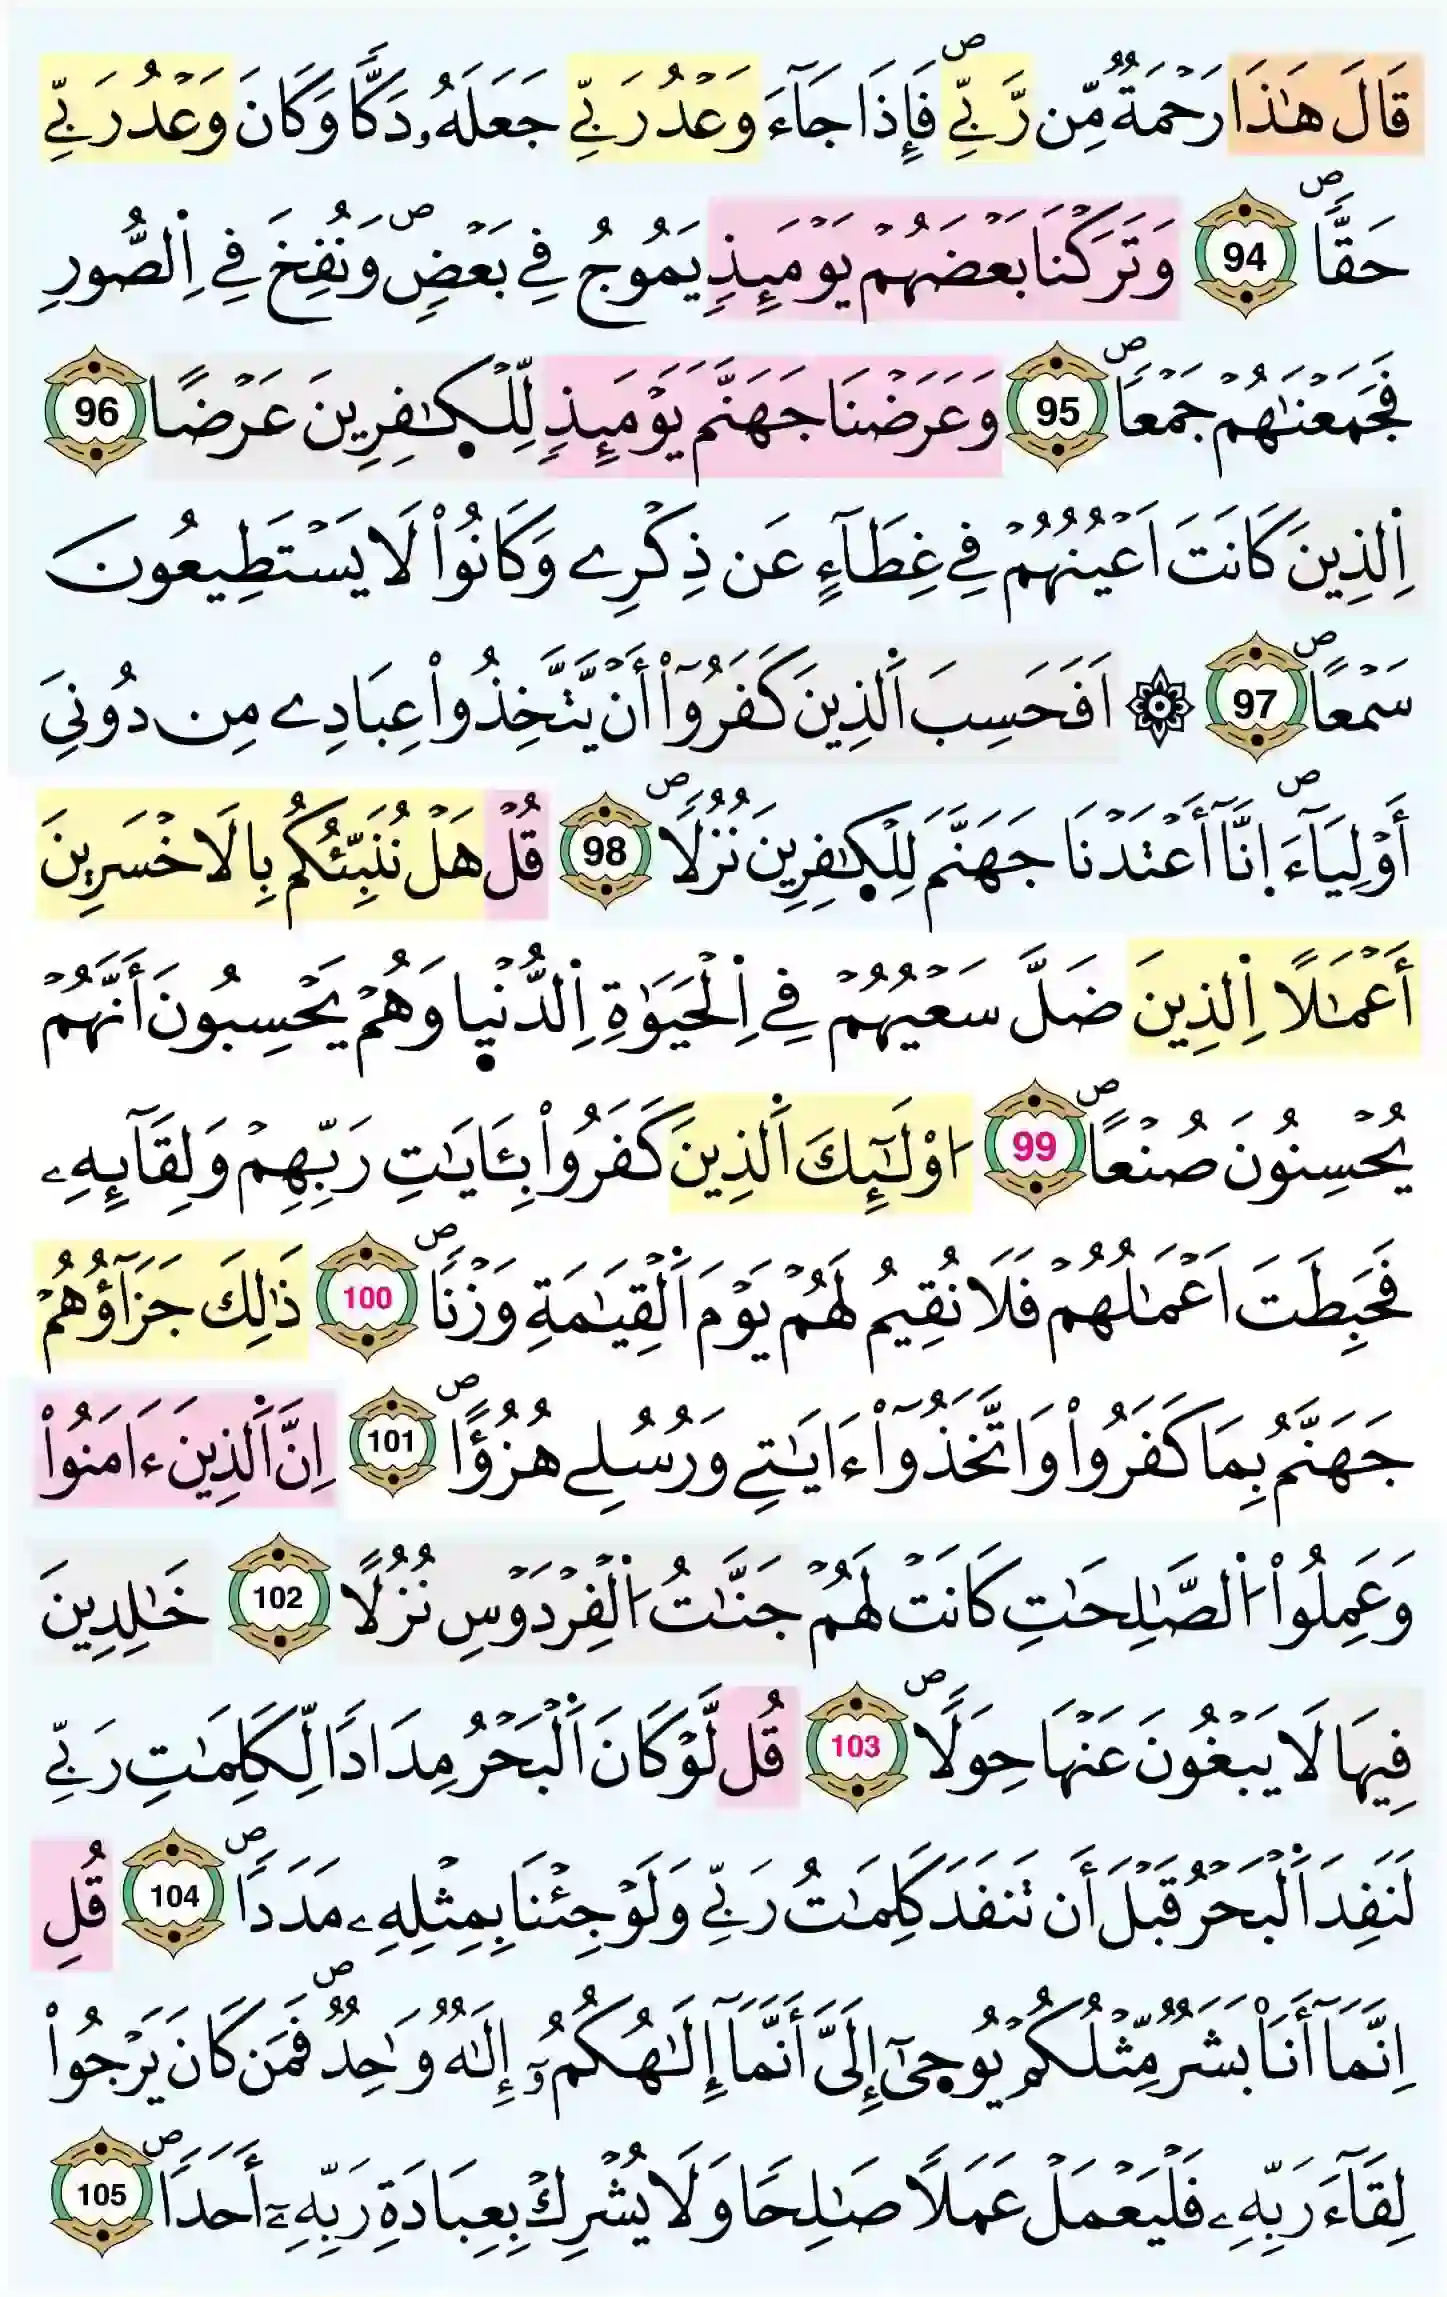 قَالَ هَٰذَا رَحْمَةٌ مِّن رَّبِّے فَإِذَا جَآءَ وَعْدُ رَبِّے جَعَلَهُۥ دَكّاٗ وَكَانَ وَعْدُ رَبِّے
حَقّاٗۖ 94 وَتَرَكْنَا بَعْضَهُمْ يَوْمَئِذٖ يَمُوجُ فِے بَعْضٖۖ وَنُفِخَ فِے اِ۬لصُّورِ
فَجَمَعْنَٰهُمْ جَمْعاٗۖ 95 وَعَرَضْنَا جَهَنَّمَ يَوْمَئِذٖ لِّلْكٰ۪فِرِينَ عَرْضاً 96
اِ۬لذِينَ كَانَتَ اَعْيُنُهُمْ فِے غِطَآءٍ عَن ذِكْرِے وَكَانُواْ لَا يَسْتَطِيعُونَ
سَمْعاًۖ 97 ۞ اَفَحَسِبَ اَ۬لذِينَ كَفَرُوٓاْ أَنْ يَّتَّخِذُواْ عِبَادِے مِن دُونِيَ
أَوْلِيَآءَۖ اِنَّآ أَعْتَدْنَا جَهَنَّمَ لِلْكٰ۪فِرِينَ نُزُلاٗۖ 98 قُلْ هَلْ نُنَبِّئُكُم بِالَاخْسَرِينَ
أَعْمَٰلاً اِ۬لذِينَ ضَلَّ سَعْيُهُمْ فِے اِ۬لْحَيَوٰةِ اِ۬لدُّنْي۪ا وَهُمْ يَحْسِبُونَ أَنَّهُمْ
يُحْسِنُونَ صُنْعاًۖ 99 ا۟وْلَٰٓئِكَ اَ۬لذِينَ كَفَرُواْ بِـَٔايَٰتِ رَبِّهِمْ وَلِقَآئِهِۦ
فَحَبِطَتَ اَعْمَٰلُهُمْ فَلَا نُقِيمُ لَهُمْ يَوْمَ اَ۬لْقِيَٰمَةِ وَزْناٗۖ 100 ذَٰلِكَ جَزَآؤُهُمْ
جَهَنَّمُ بِمَا كَفَرُواْ وَاتَّخَذُوٓاْ ءَايَٰتِے وَرُسُلِے هُزُؤاًۖ 101 اِنَّ اَ۬لذِينَ ءَامَنُواْ
وَعَمِلُواْ اُ۬لصَّٰلِحَٰتِ كَانَتْ لَهُمْ جَنَّٰتُ اُ۬لْفِرْدَوْسِ نُزُلاً 102 خَٰلِدِينَ
فِيهَا لَا يَبْغُونَ عَنْهَا حِوَلاٗۖ 103 قُل لَّوْ كَانَ اَ۬لْبَحْرُ مِدَاداٗ لِّكَلِمَٰتِ رَبِّے
لَنَفِدَ اَ۬لْبَحْرُ قَبْلَ أَن تَنفَدَ كَلِمَٰتُ رَبِّے وَلَوْ جِئْنَا بِمِثْلِهِۦ مَدَداٗۖ 104 قُلِ
اِنَّمَآ أَنَا۠ بَشَرٌ مِّثْلُكُمْ يُوح۪يٰٓ إِلَيَّ أَنَّمَآ إِلَٰهُكُمُۥٓ إِلَٰهٌ وَٰحِدٌۖ فَمَن كَانَ يَرْجُواْ
لِقَآءَ رَبِّهِۦ فَلْيَعْمَلْ عَمَلاً صَٰلِحاً وَلَا يُشْرِكْ بِعِبَادَةِ رَبِّهِۦٓ أَحَداًۖ 105